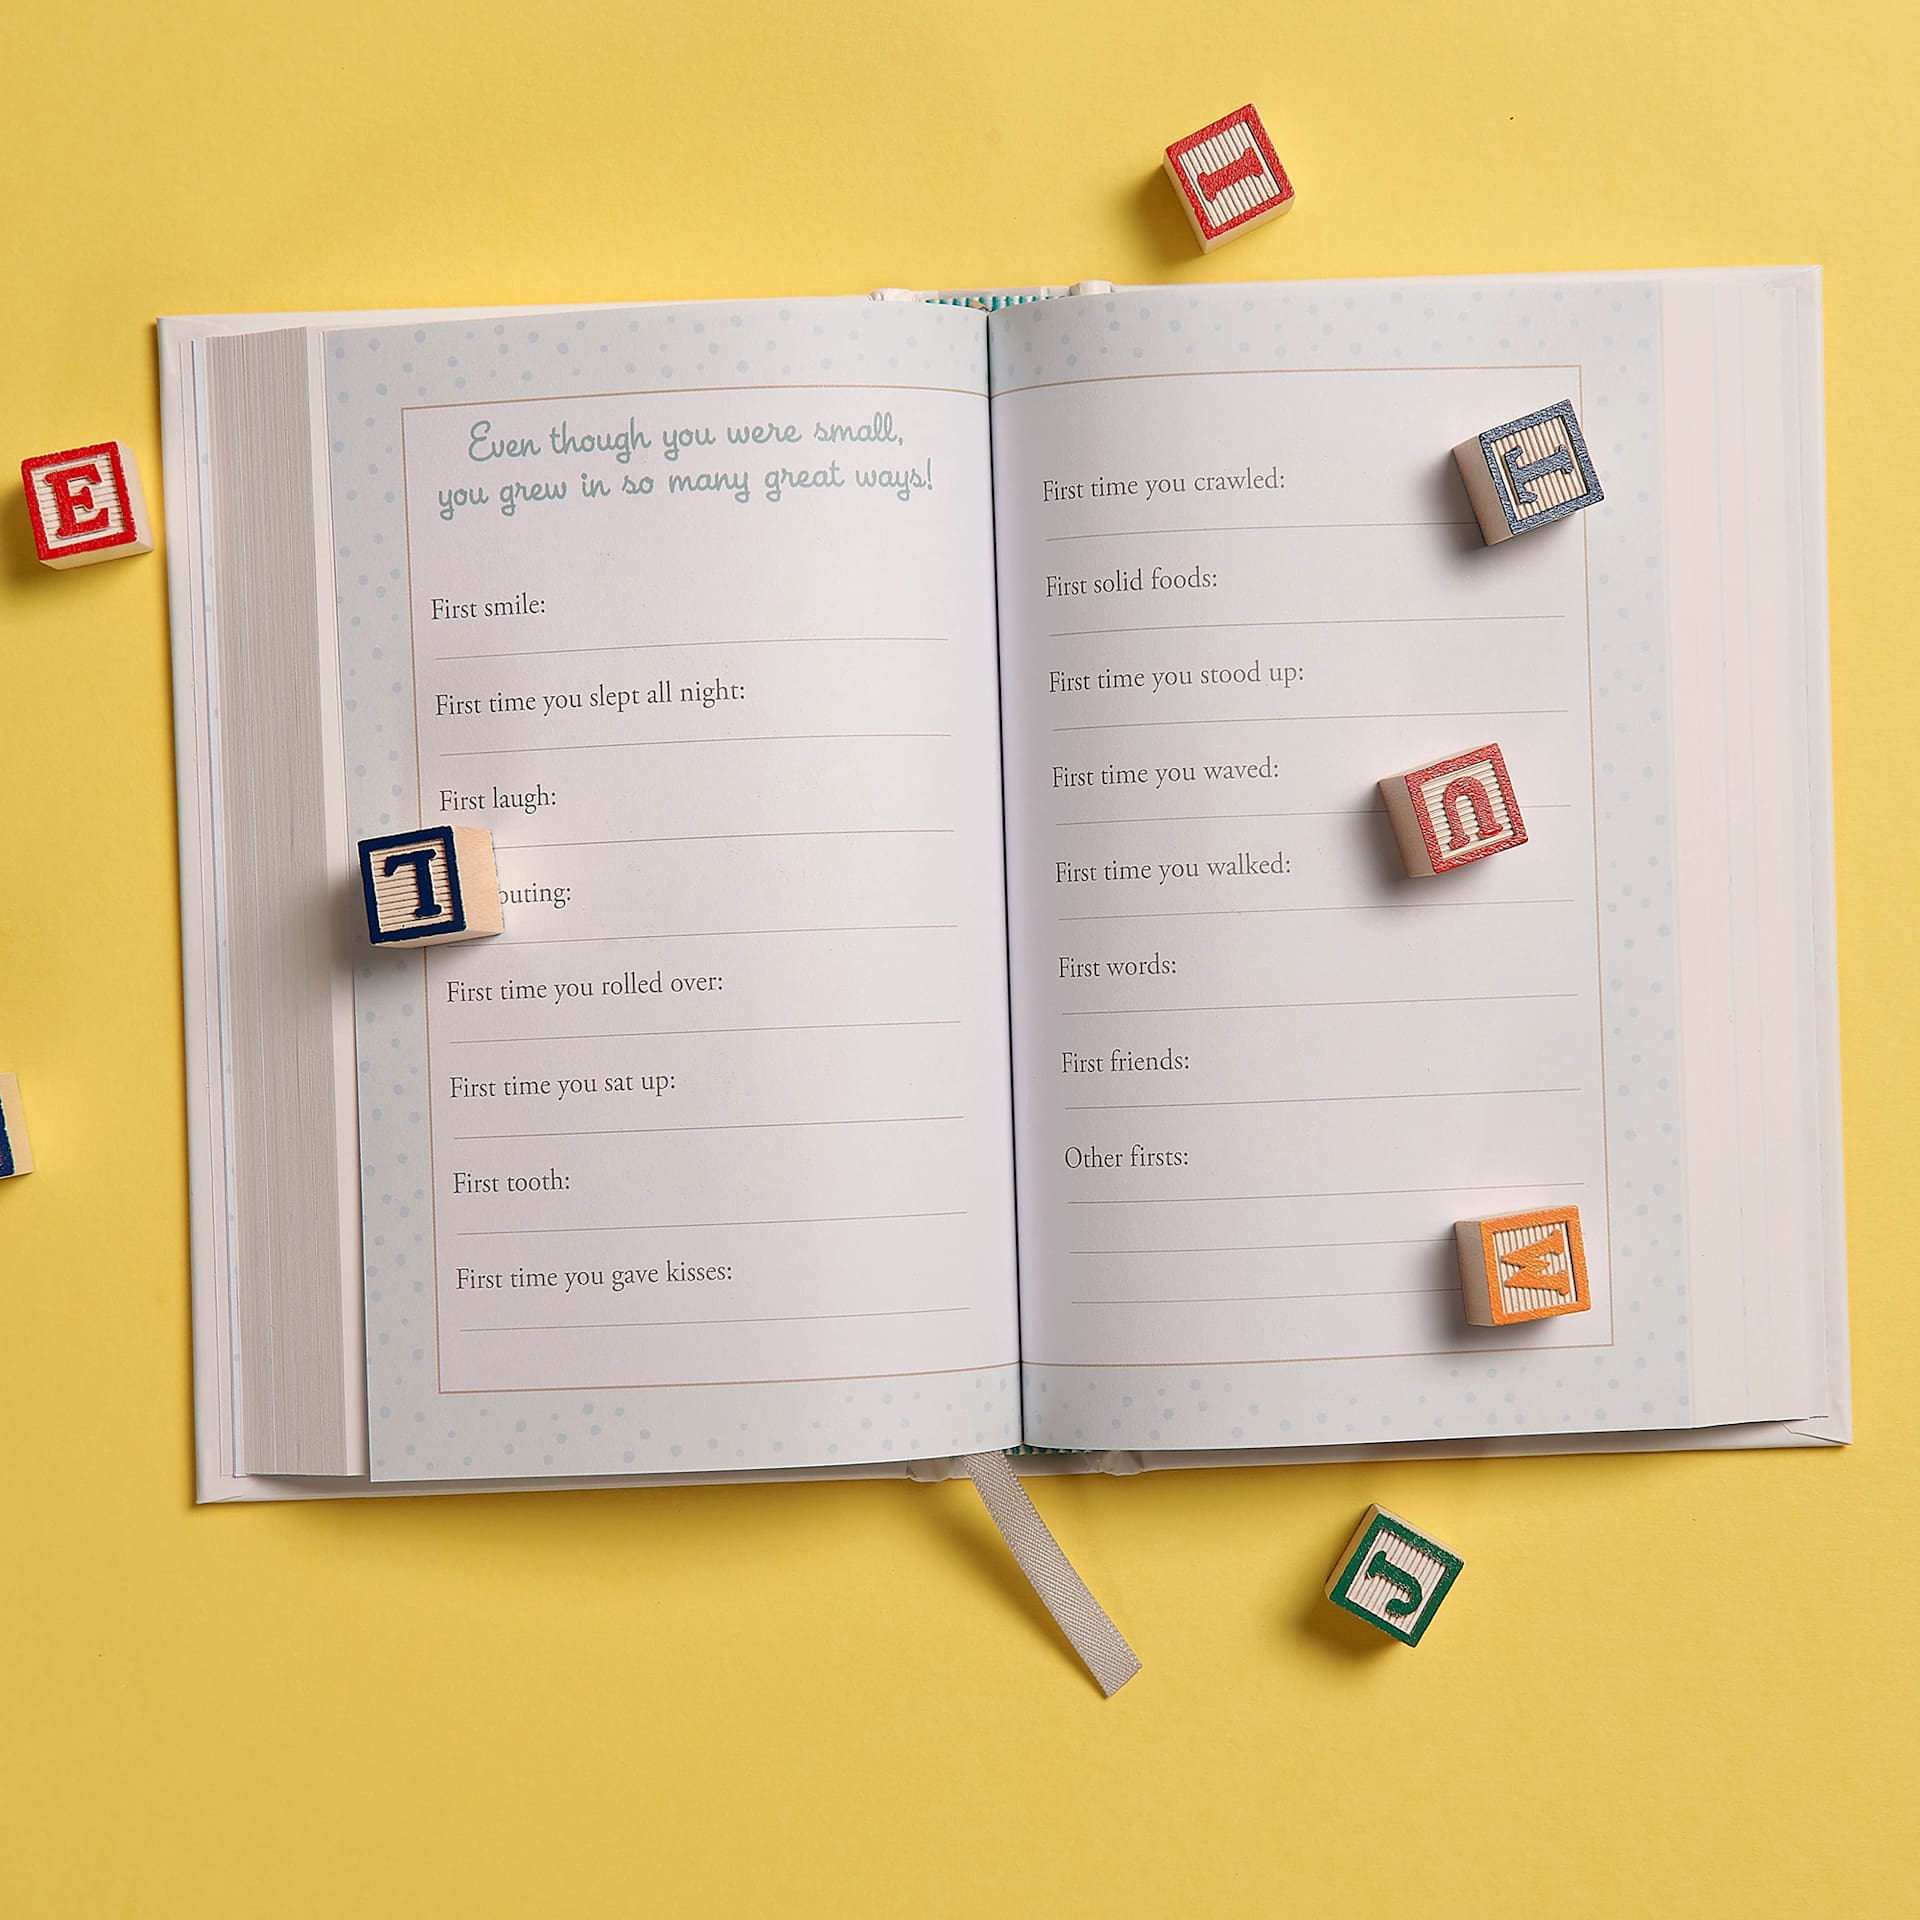 Even though you were small,
you grew in so many great ways!
First smile:
First time you slept all night:
First laugh:
outing:
First time you rolled over:
First time you sat up:
First tooth:
First time you gave kisses:
First time you crawled:
First solid foods:
First time you stood up:
First time you waved:
First time you walked:
First words:
First friends:
Other firsts:
I
E
T
U
L
M
J